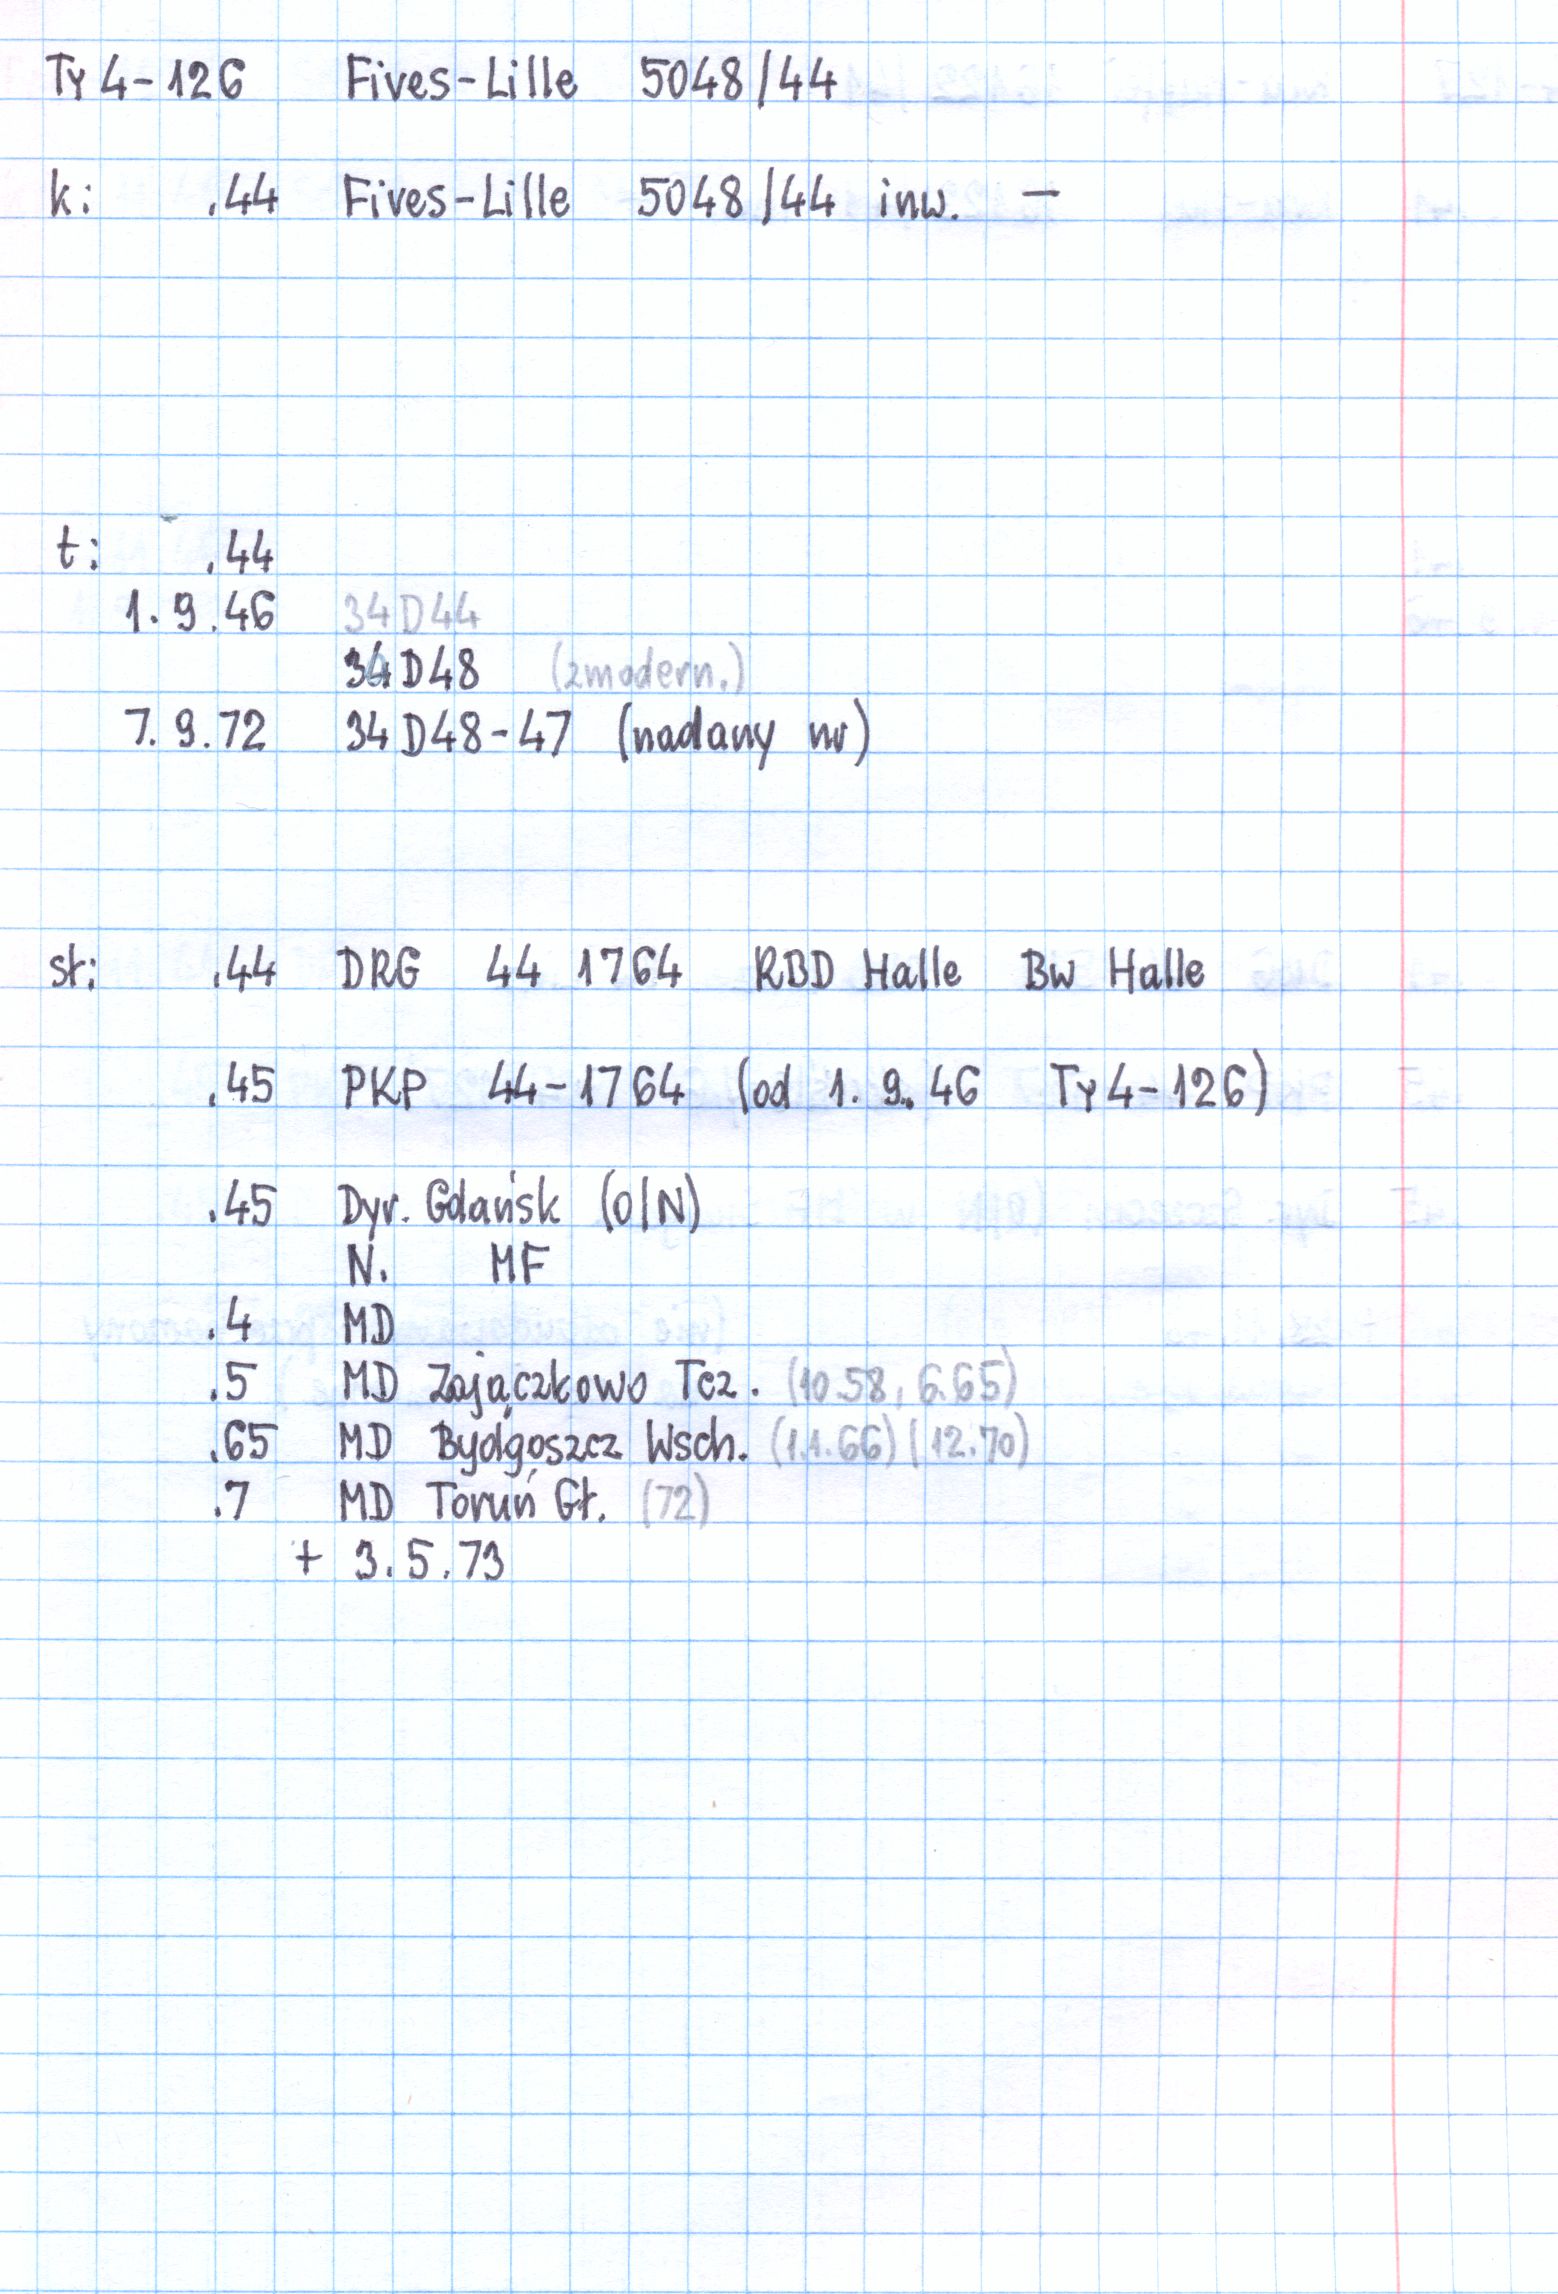 Ty4-126 Fives-Lille 5048/44
k: .44 Fives-Lille 5048/44 inw. —
t: .44
1.9.46 34D44
34D48 (zmodern.)
7.9.72 34D48-47 (nadany nr)
st: .44 DRG 44 1764 RBD Halle Bw Halle
.45 PKP 44-1764 (od 1.9.46 Ty4-126)
.45 Dyr. Gdańsk (O/N)
N. MF
.4 MD
.5 MD Zajączkowo Tcz. (10.58, 6.65)
.65 MD Bydgoszcz Wsch. (1.1.66) (12.70)
.7 MD Toruń Gł. (72)
+ 3.5.73